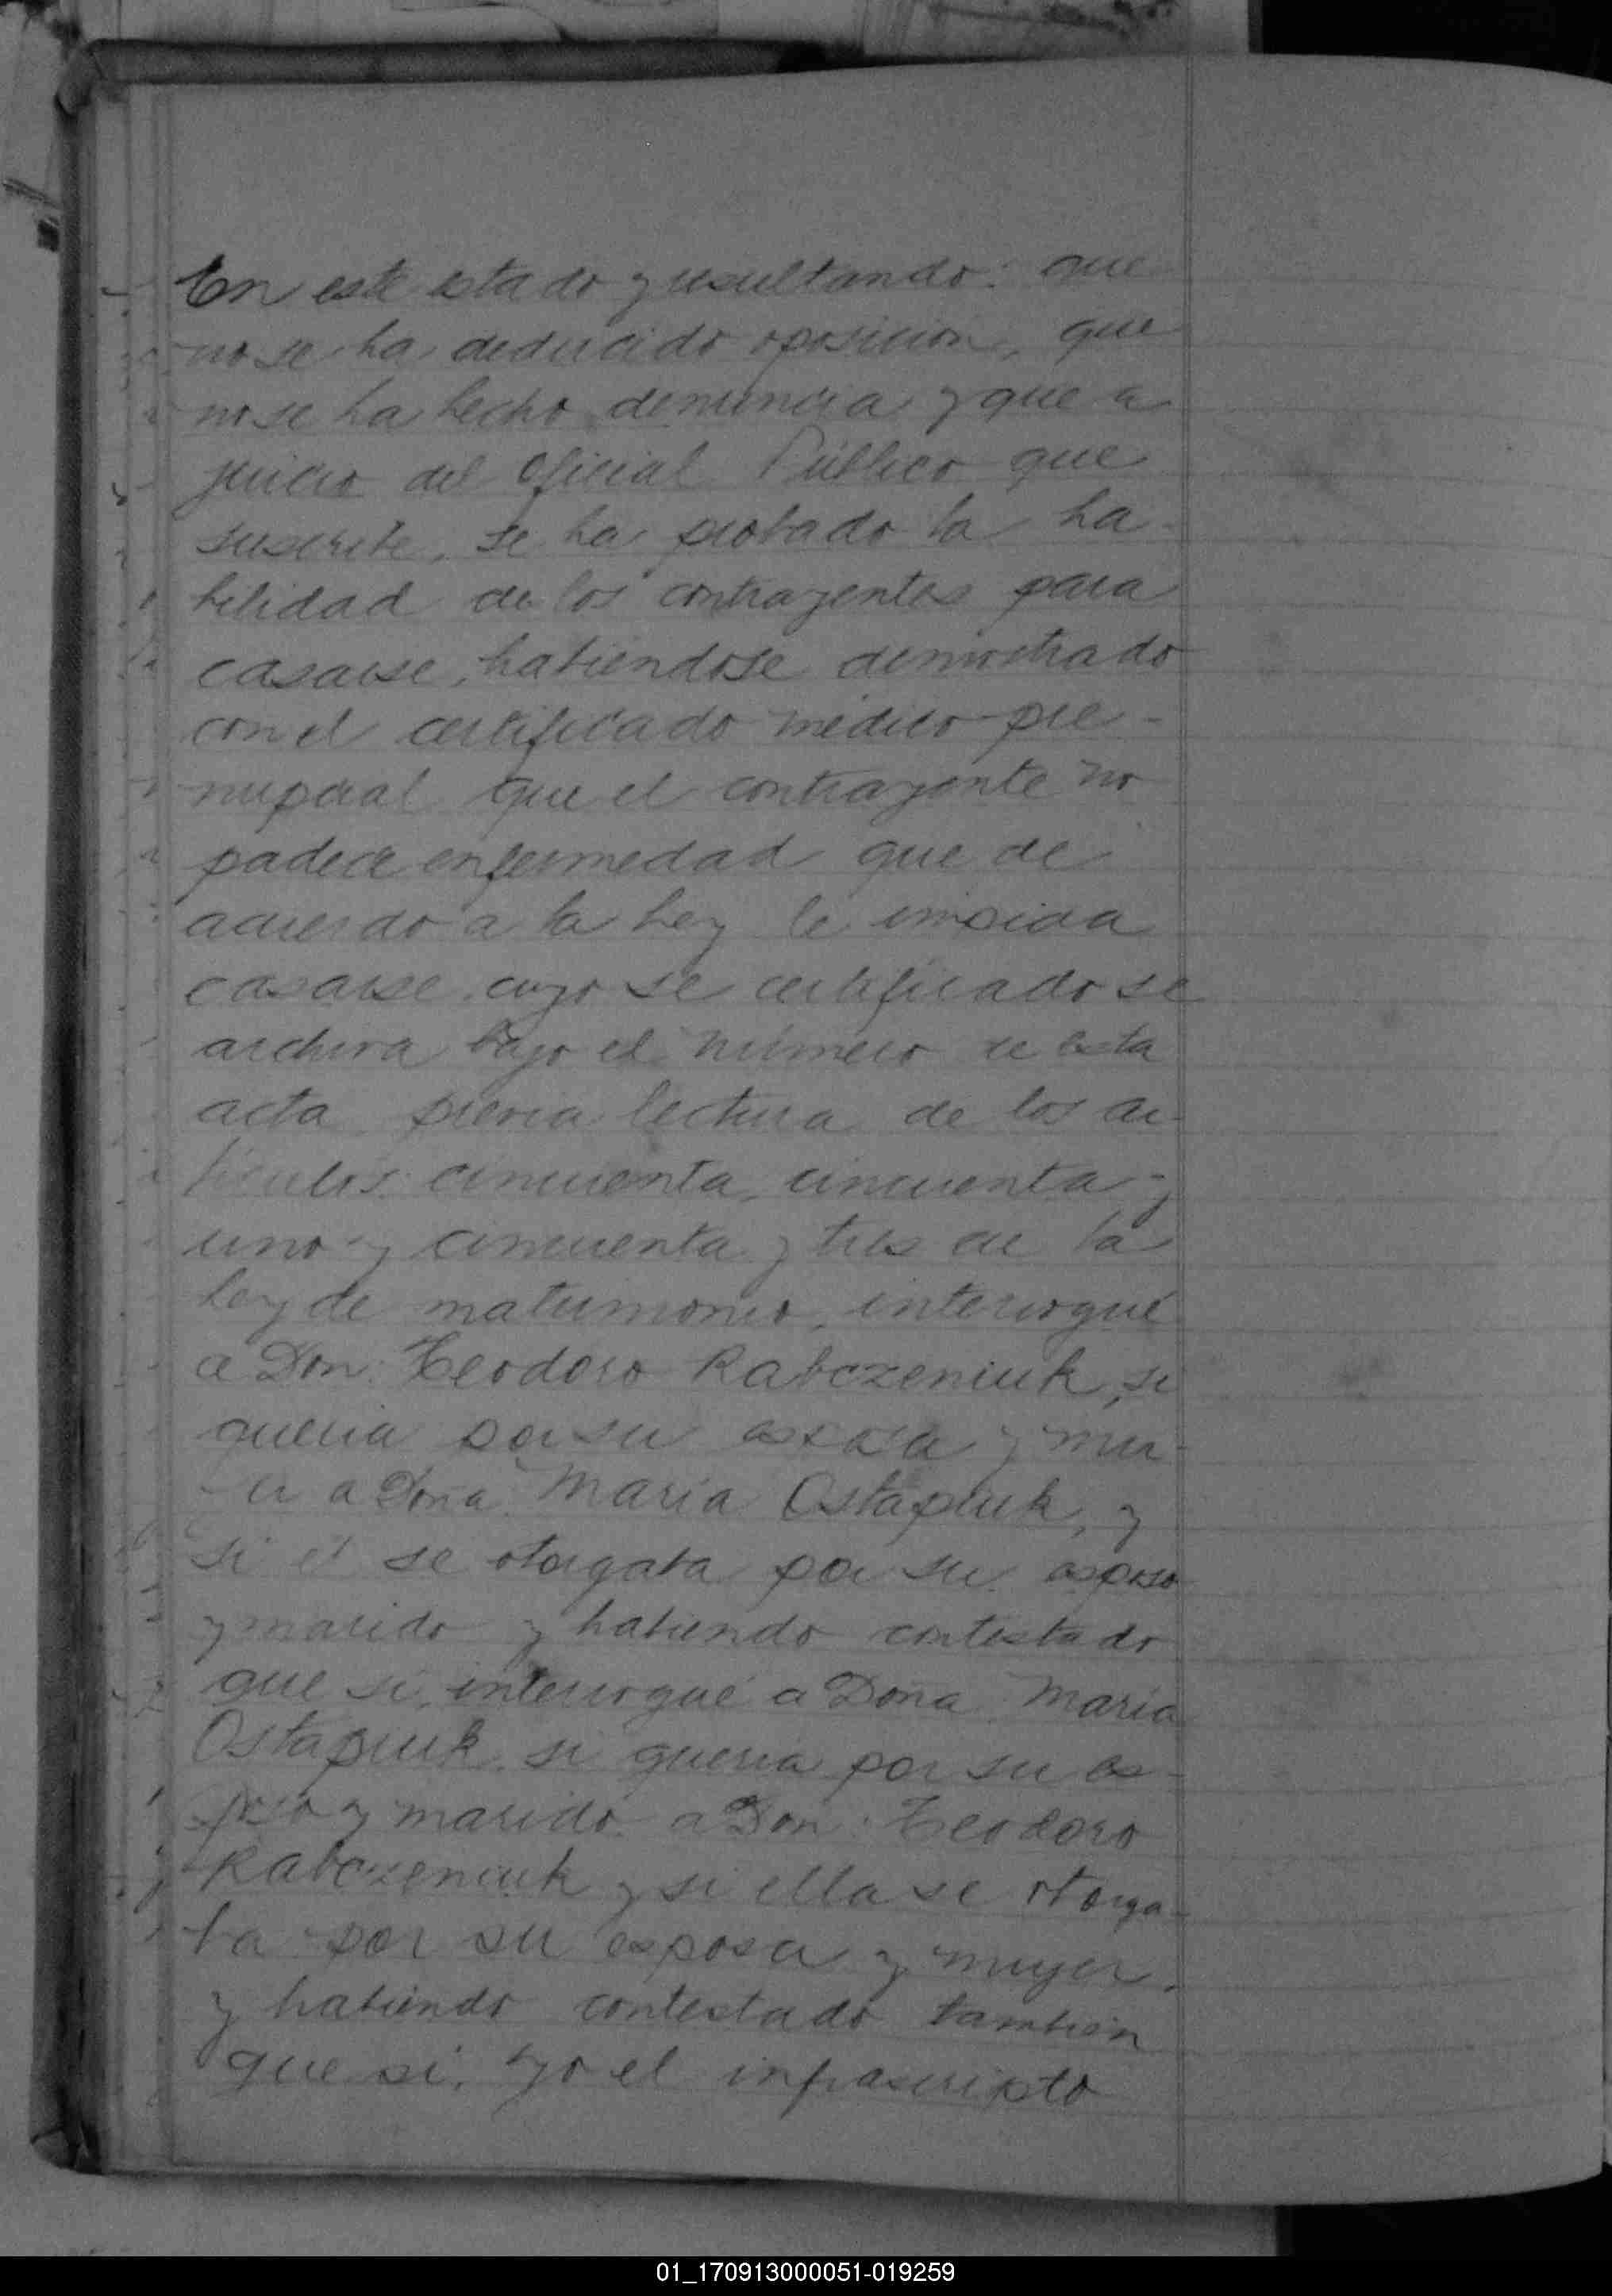 En este estado y resultando: que
no se ha deducido oposición, que
no se ha hecho denuncia y que a
juicio del Oficial Público que
suscribe, se ha probado la ha-
bilidad de los contrayentes para
casarse, habiéndose demostrado
con el certificado médico pre-
nupcial que el contrayente no
padece enfermedad que de
acuerdo a la Ley le impida
casarse, cuyo se certificado se
archiva bajo el número de esta
acta previa lectura de los ar-
tículos: cincuenta, cincuenta y
uno y cincuenta y tres de la
ley de matrimonio, interrogué
a Don: Teodoro Rabczeniuk, si
quería por su esposa y mu-
a Doña María Ostapiuk, y
si él se otorgaba por su esposo
y marido y habiendo contestado
que sí, interrogué a Doña María
Ostapiuk si quería por su es-
poso y marido a Don: Teodoro
Rabczeniuk y si ella se otorga-
ba por su esposa y mujer,
y habiendo contestado también
que sí, Yo el infrascripto
01_170913000051-019259